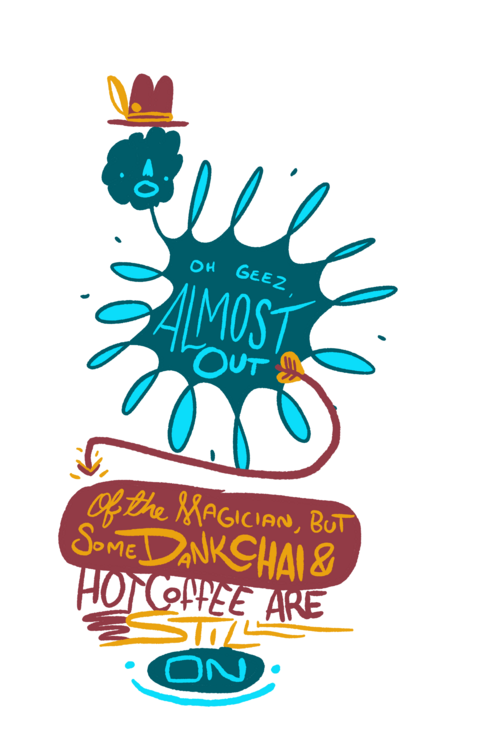 OH GEEZ,
ALMOST
OUT
Of the MAGICIAN, BUT
SOME DANK CHAI &
HOT COFFEE ARE
STILL
ON